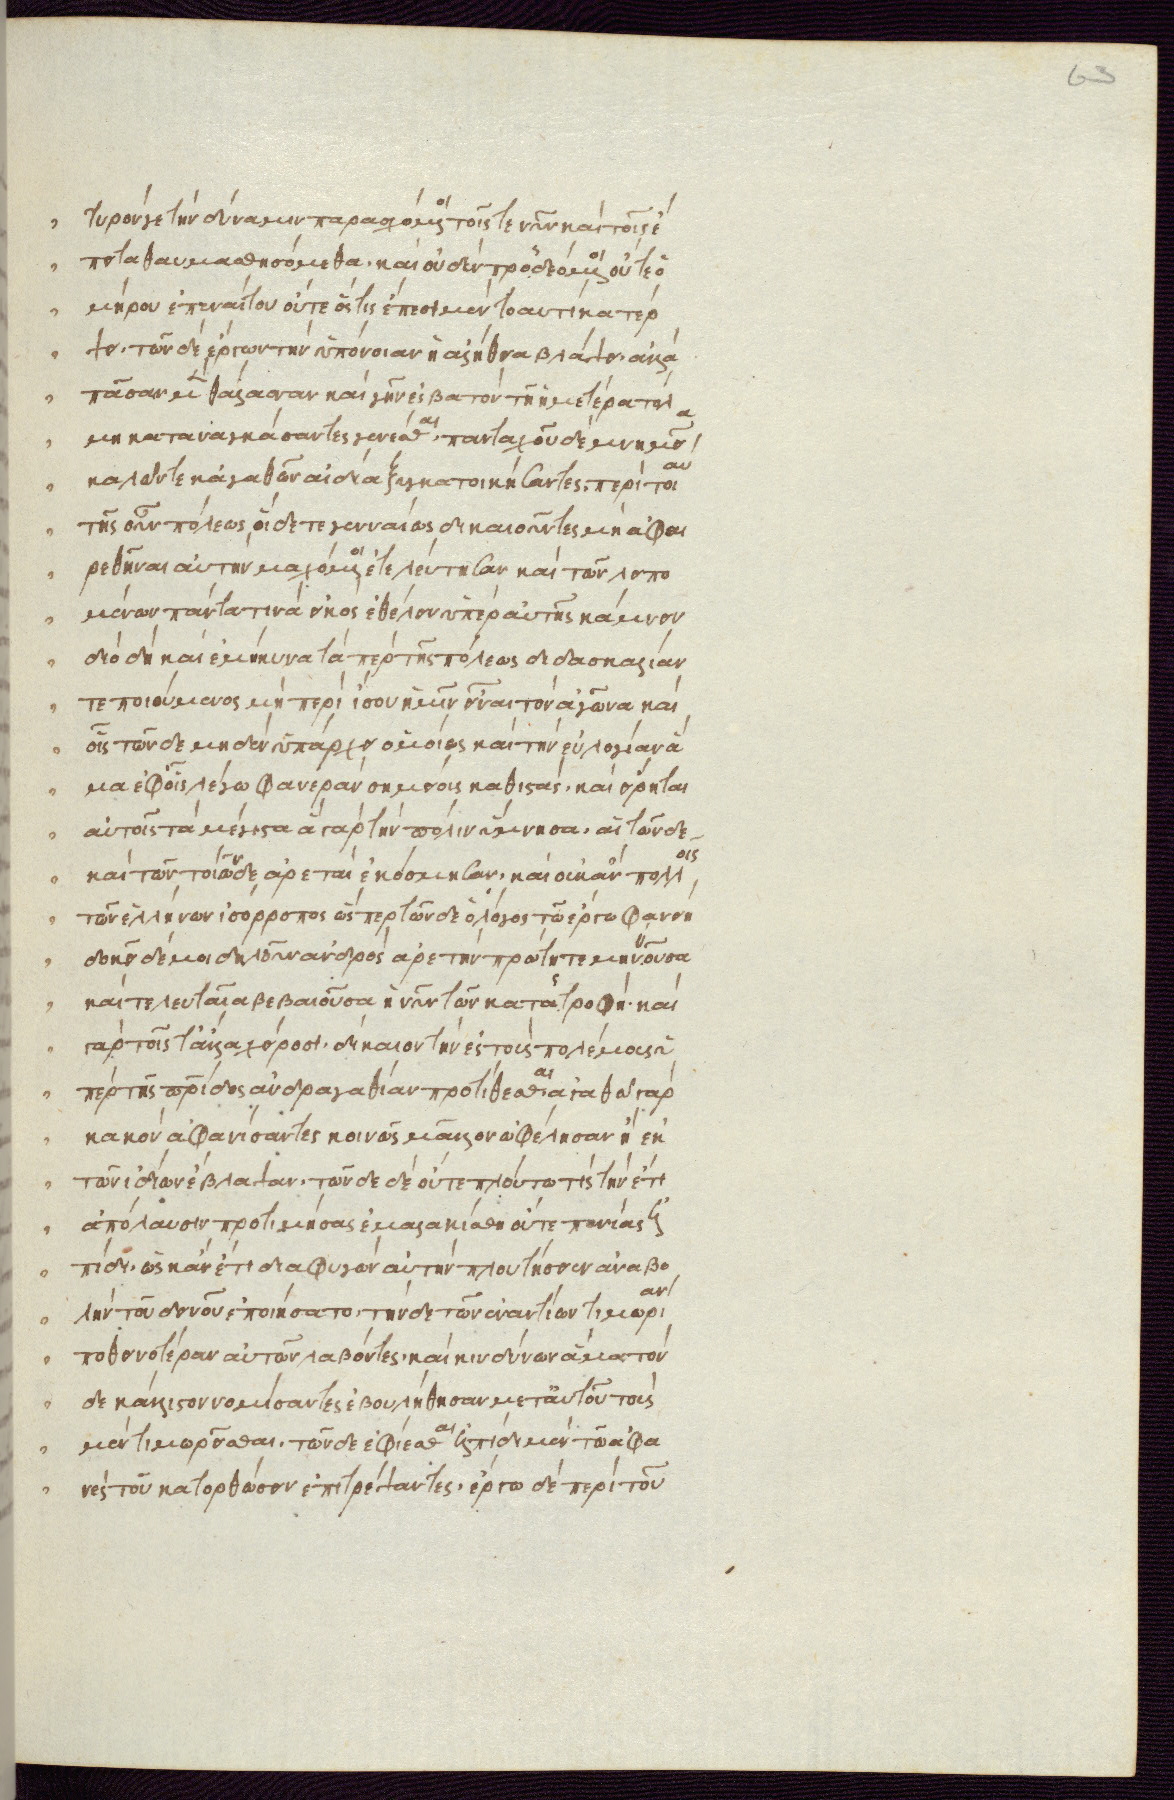 63
τυρόν γε τὴν δύναμιν παρασχόμενοι τοῖς τε νῦν καὶ τοῖς ἔ
πειτα θαυμασθησόμεθα· καὶ οὐδὲν προσδεόμενοι οὔτε ὁ
μήρου ἐπαινέτου οὔτε ὅστις ἔπεσι μὲν τὸ αυτίκα τέρ
ψει· τῶν δὲ ἔργων τὴν ὑπόνοιαν ἡ ἀλήθεια βλάψει· ἀλλὰ
πᾶσαν μὲν θάλασσαν καὶ γῆν ἐσβατὸν τῇ ἡμετέρα τόλ
μη καταναγκάσαντες γενέσθαι· πανταχοῦ δὲ μνημεῖα
καλῶν τε κἀγαθῶν ἀίδια ξυγκατοικήσαντες· περὶ τοιαύ
της οὖν πόλεως οἵδε τε γενναίως δικαιοῦντες μὴ ἀφαι
ρεθῆναι αὐτὴν μαχόμενοι ἐτελεύτησαν καὶ τῶν λειπο
μένων πάντα τινὰ εἰκὸς ἐθέλειν ὑπὲρ αὐτῆς κάμνειν
διὸ δὴ καὶ ἐμήκυνα τὰ περὶ τῆς πόλεως διδασκαλίαν
τε ποιούμενος μὴ περὶ ἴσου ἡμῖν εἶναι τὸν ἀγῶνα καὶ
οἷς τῶν δε μηδὲν ὑπάρχει ὁμοίως καὶ τὴν εὐλογίαν ἅ
μα ἐφ' οἷς λέγω φανερὰν σημείοις καθιστάς· καὶ εἴρηται
αὐτοῖς τὰ μέγιστα ἃ γὰρ τὴν πόλιν ὕμνησα· αἱ τῶν δε
καὶ τῶν τοιῶν δε ἀρεταὶ ἐκόσμησαν· καὶ οὐκ ἂν πολλοῖς
τῶν ἑλλήνων ἰσόρροπος ὥσπερ τῶν δε ὁ λόγος τῶ ἔργω φανείη
δοκεῖ δέ μοι δηλοῦν ἀνδρὸς ἀρετὴν πρώτη τε μηνύουσα
καὶ τελευταῖα βεβαιοῦσα ἡ νῦν τῶν καταστροφή· καὶ
γὰρ τοῖς τἄλλα χείροσι· δίκαιον τὴν ἐς τοὺς πολέμους ὑ
πὲρ τῆς πρίδος ἀνδραγαθίαν προτίθεσθαι ἀγαθῶ γὰρ
κακὸν ἀφανίσαντες κοινῶς μᾶλλον ὠφέλησαν ἢ ἐκ
τῶν ἰδίων ἔβλαψαν· τῶν δε δὲ οὔτε πλούτω τις τὴν ἔτι
ἀπόλαυσιν προτιμήσας ἐμαλακίσθη οὔτε πενίας ἐλ
πίδι· ὡς κἂν ἔτι διαφυγὼν αὐτὴν πλουτήσειεν ἀναβο
λὴν τοῦ δεινοῦ ἐποιήσατο· τὴν δε τῶν ἐναντίων τιμωρίαν
ποθεινοτέραν αὐτῶν λαβόντες· καὶ κινδύνων ἅμα τόν
δε κάλλιστον νομίσαντες ἐβουλήθησαν μετ' αὐτοῦ τοὺς
μὲν τιμωρεῖσθαι· τῶν δε ἐφίεσθαι ἐλπίδι μὲν τῶ ἀφα
νὲς τοῦ κατορθώσειν ἐπιτρέψαντες· ἔργω δὲ περὶ τοῦ